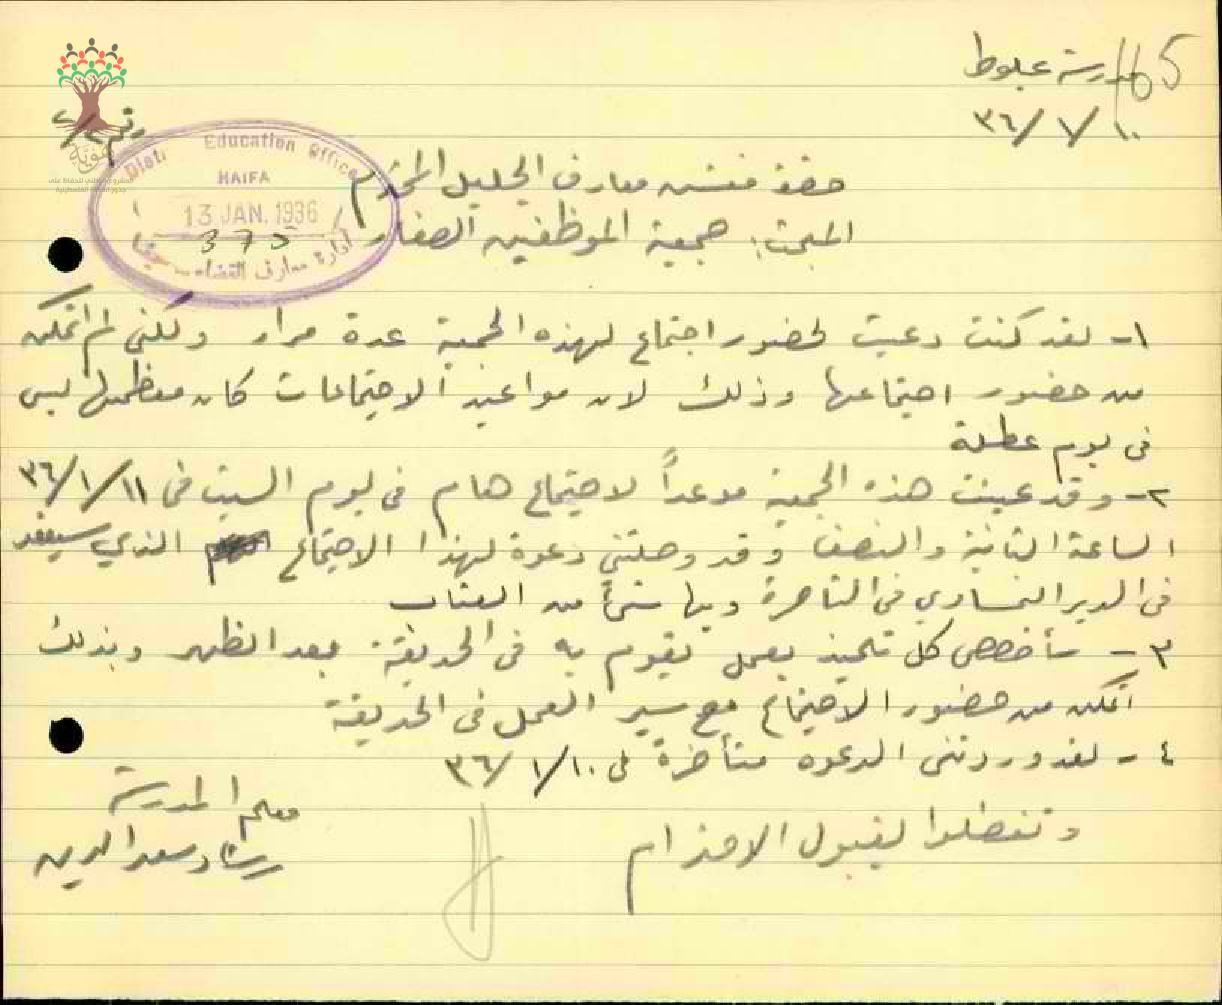 مدرسة عيلوط
165
٣٦/١/١٠
رقم
Education Office
HAIFA
13 JAN. 1936
375
ادارة معارف القضاء - حيفا
حضرة مفتش معارف الجليل المحترم
المبحث: جمعية الموظفين الصغار
١- لقد كنت دعيت لحضور اجتماع لهذه الجمعية عدة مرار ولكني لم اتمكن
من حضور اجتماعها وذلك لان مواعيد الاجتماعات كان معظمها ليس
في يوم عطلة
٢- وقد عينت هذه الجمعية موعداً لاجتماع هام في يوم السبت في ٣٦/١/١١
الساعة الثانية والنصف وقد وصلتني دعوة لهذا الاجتماع الذي سيعقد
في الدير النمساوي في الناصرة وبها شئ من العتاب
٣- سأخصص كل تلميذ بعمل يقوم به في الحديقة بعد الظهر وبذلك
اتمكن من حضور الاجتماع مع سير العمل في الحديقة
٤- لقد وردتني الدعوه متأخرة في ٣٦/١/١٠
وتفضلوا بقبول الاحترام
معلم المدرسة
رشاد سعد الدين